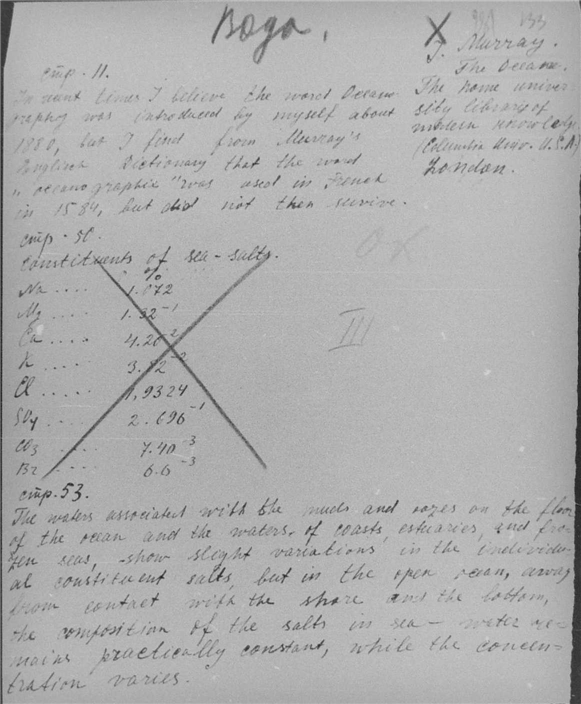 Вода.
X
133
J. Murray.
The Oceane.
The home univer-
sity library of
modern knowledge
(Columbia Univ. U.S.A)
London.
стр. 11.
In recent times I believe the word Oceano-
graphy was introduced by myself about
1880, but I find from Murray's
Englisch Dictionary that the word
„oceanographie" was used in French
in 1584, but did not then survive.
стр. 50.
Constituents of sea-salts.
%
Na .... 1.072
Mg .... 1.32⁻¹
Ca .... 4.20⁻²
K .... 3.82⁻²
Cl ..... 1,9324
SO₄ .... 2.696⁻¹
CO₃ .... 7.40⁻³
Br .... 6.6⁻³
III
стр. 53.
The waters associated with the muds and oozes on the floor
of the ocean and the waters of coasts, estuaries, and fro-
zen seas, show slight variations in the individu-
al constituent salts, but in the open ocean, away
from contact with the shore and the bottom,
the composition of the salts in sea-water re-
mains practically constant, while the concen-
tration varies.